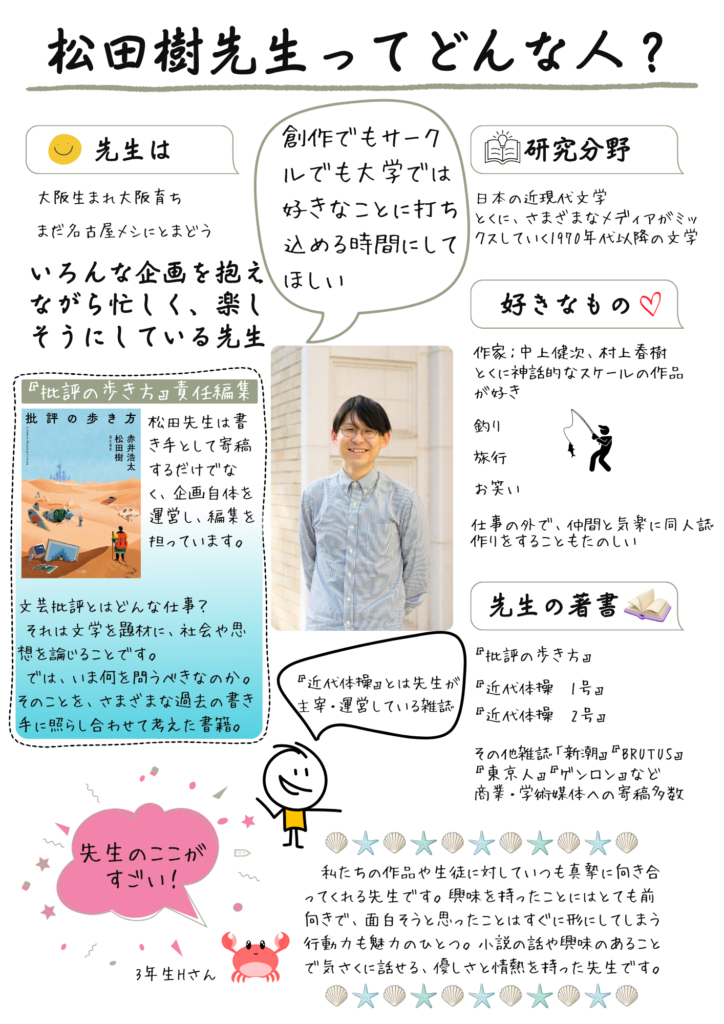 松田樹先生ってどんな人？
先生は
大阪生まれ大阪育ち
まだ名古屋メシにとまどう
いろんな企画を抱え
ながら忙しく、楽し
そうにしている先生
創作でもサーク
ルでも大学では
好きなことに打ち
込める時間にして
ほしい
研究分野
日本の近現代文学
とくに、さまざまなメディアがミッ
クスしていく1970年代以降の文学
好きなもの
作家；中上健次、村上春樹
とくに神話的なスケールの作品
が好き
釣り
旅行
お笑い
仕事の外で、仲間と気楽に同人誌
作りをすることもたのしい
『批評の歩き方』責任編集
批評の歩き方
赤井浩太
松田樹
松田先生は書
き手として寄稿
するだけでな
く、企画自体を
運営し、編集を
担っています。
文芸批評とはどんな仕事？
それは文学を題材に、社会や思
想を論じることです。
では、いま何を問うべきなのか。
そのことを、さまざまな過去の書き
手に照らし合わせて考えた書籍。
先生の著書
『批評の歩き方』
『近代体操　1号』
『近代体操　2号』
その他雑誌「新潮」『BRUTUS』
『東京人』『ゲンロン』など
商業・学術媒体への寄稿多数
『近代体操』とは先生が
主宰・運営している雑誌
先生のここが
すごい！
3年生Hさん
私たちの作品や生徒に対していつも真摯に向き合
ってくれる先生です。興味を持ったことにはとても前
向きで、面白そうと思ったことはすぐに形にしてしまう
行動力も魅力のひとつ。小説の話や興味のあること
で気さくに話せる、優しさと情熱を持った先生です。